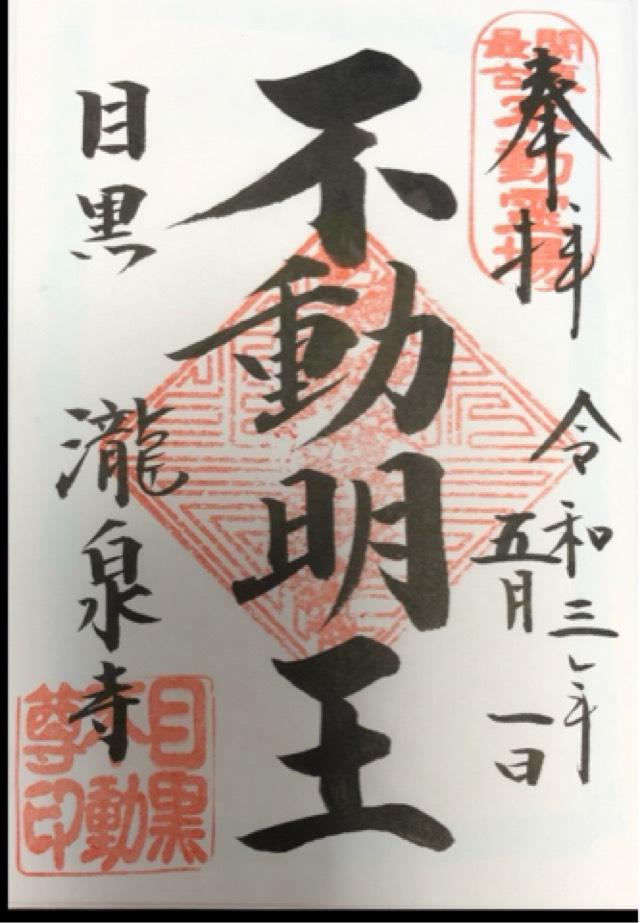 奉拝
関東
最古不動霊場
令和三年
五月一日
不動明王
目黒 瀧泉寺
目黒
不動
尊印